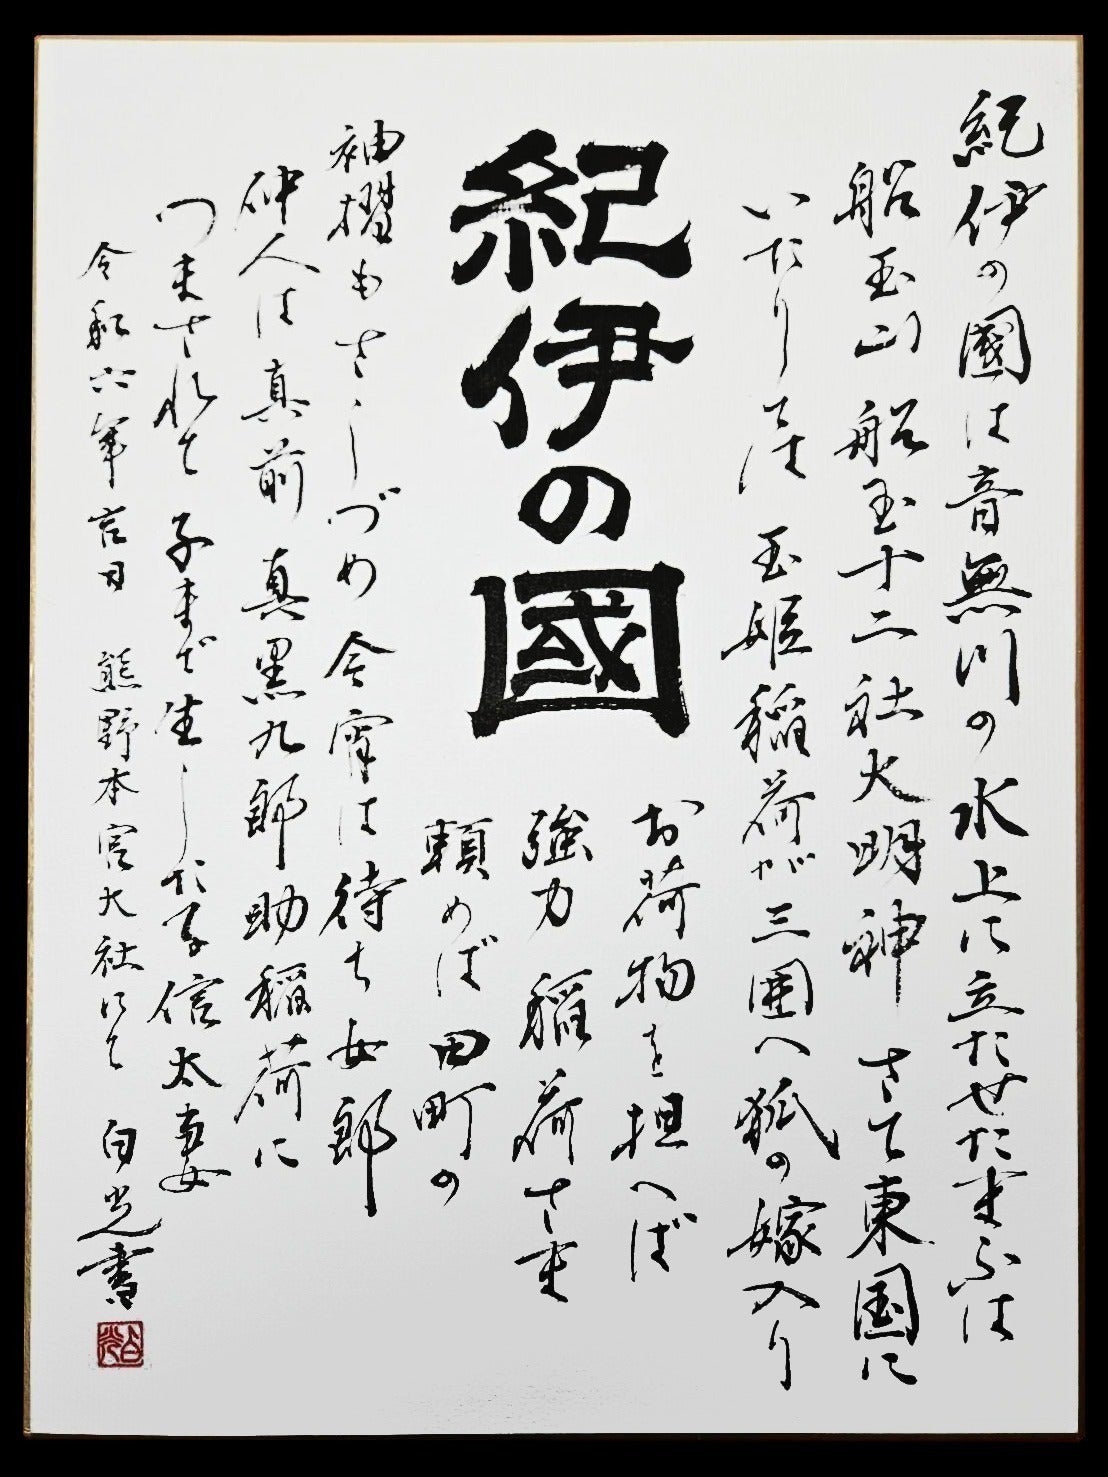 紀伊の國は音無川の水上に立たせたまふは
船玉山船玉十二社大明神 さて東国に
いたりては 玉姫稲荷が三囲へ狐の嫁入り
紀伊の國
お荷物を担へば
強力稲荷さま
頼めば田町の
袖摺もさしづめ今宵は待ち女郎
仲人は真前 真黒九郎助稲荷に
つまされて 子まで生した子信太妻
令和六年吉日 熊野本宮大社にて 白光書
白光